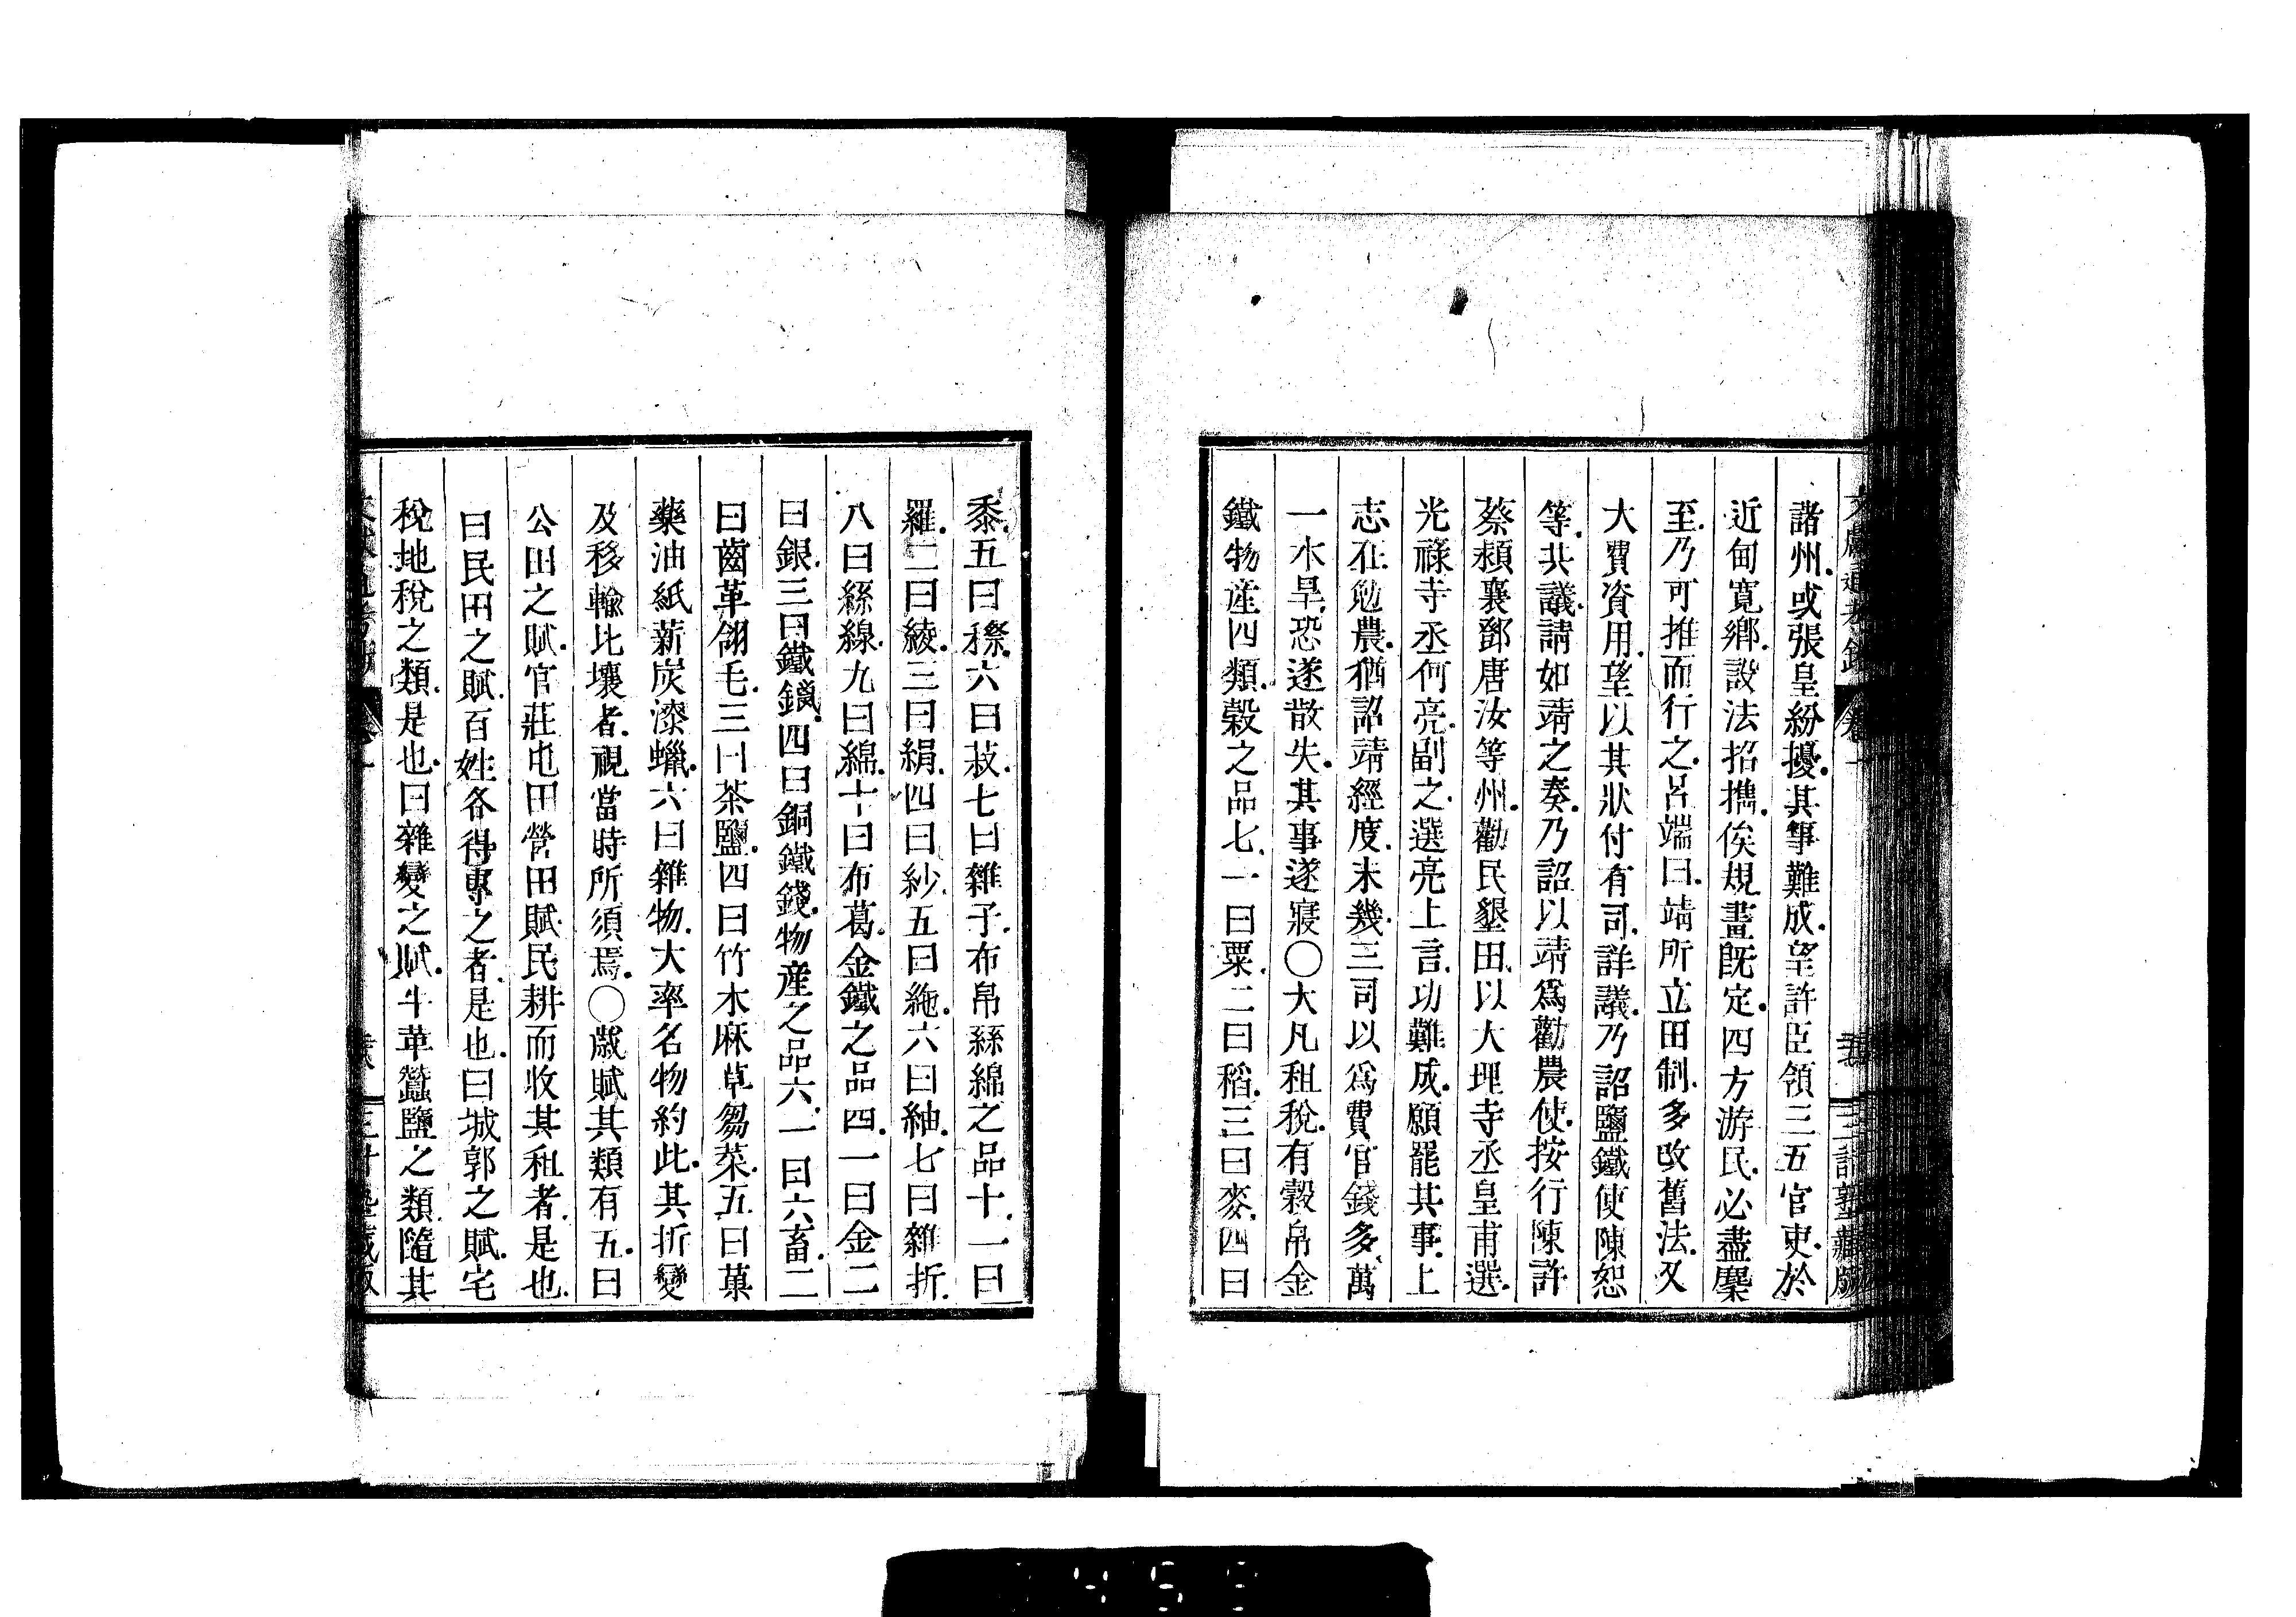 諸州.或張皇紛擾.其事難成.望許臣領三五官吏.於
近甸寬鄉.設法招攜.俟規畫既定.四方游民.必盡麇
至.乃可推而行之.呂端曰.靖所立田制.多改舊法.又
大費資用.望以其狀付有司.詳議.乃詔鹽鐵使陳恕
等.共議.請如靖之奏.乃詔以靖爲勸農使.按行陳許
蔡潁襄鄧唐汝等州.勸民墾田.以大理寺丞皇甫選.
光祿寺丞何亮.副之.選亮上言.功難成.願罷其事.上
志在勉農.猶詔靖經度.未幾.三司以爲費官錢多.萬
一水旱.恐遂散失.其事遂寢○大凡租稅.有穀帛金
鐵物產四類.穀之品七.一曰粟.二曰稻.三曰麥.四曰
黍.五曰穄.六曰菽.七曰雜子.布帛絲綿之品十.一曰
羅.二曰綾.三曰絹.四曰紗.五曰絁.六曰紬.七曰雜折.
八曰絲線.九曰綿.十曰布葛.金鐵之品四.一曰金二
曰銀.三曰鐵鑞.四曰銅鐵錢.物產之品六.一曰六畜.二
曰齒革翎毛.三曰茶鹽.四曰竹木麻草芻菜.五曰菓
藥油紙薪炭漆蠟.六曰雜物.大率名物約此.其折變
及移輸比壤者.視當時所須焉.○歲賦其類有五.曰
公田之賦.官莊屯田營田賦民耕而收其租者.是也.
曰民田之賦.百姓各得專之者.是也.曰城郭之賦.宅
稅地稅之類.是也.曰雜變之賦.牛革蠶鹽之類.隨其